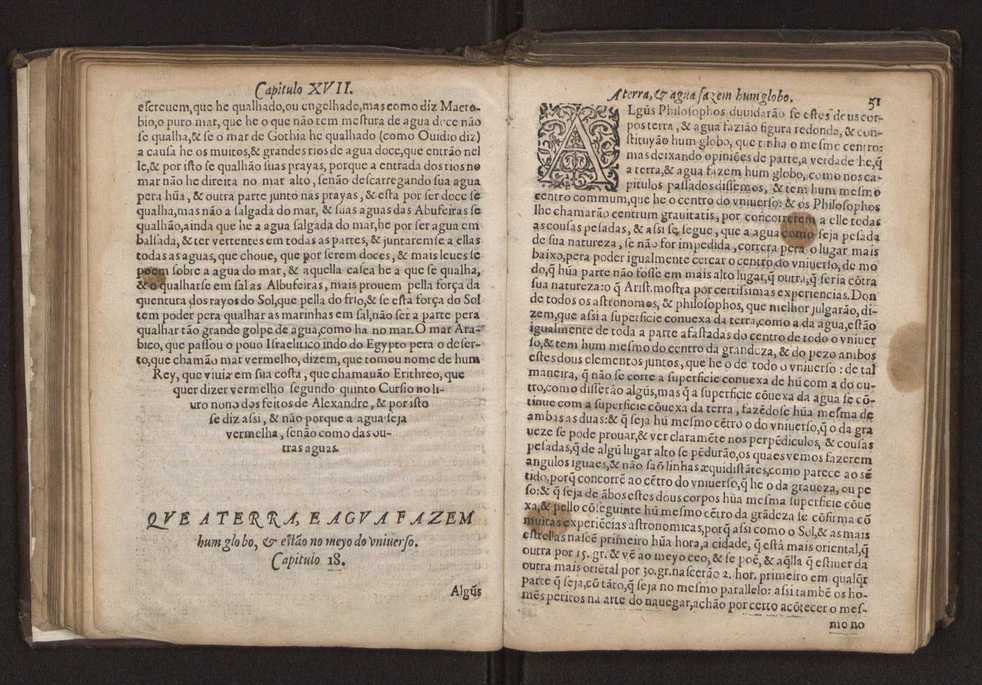 Capitulo XVII.
escreuem,que he qualhado,ou engelhado,mas como diz Macro-
bio,o puro mar, que he o que não tem mestura de agua doce não
se qualha,& se o mar de Gothia he qualhado (como Ouidio diz)
a causa he os muitos,& grandes rios de agua doce,que entrão nel
le,& por isto se qualhão suas prayas, porque a entrada dos rios no
mar não he direita no mar alto, senão descarregando sua agua
pera hũa, & outra parte junto nas prayas, & esta por ser doce se
qualha,mas não a salgada do mar, & suas aguas das Abufeiras se
qualhão,ainda que he a agua salgada do mar,he por ser agua em
balsada,& ter vertentes em todas as partes,& juntaremse a ellas
todas as aguas,que choue, que por serem doces, & mais leues se
poem sobre a agua do mar, & aquella casca he a que se qualha,
& o qualharse em sal as Albufeiras, mais prouem pella força da
quentura dos rayos do Sol,que pella do frio,& se esta força do Sol
tem poder pera qualhar as marinhas em sal,não ser a parte pera
qualhar tão grande golpe de agua,como ha no mar. O mar Ara-
bico, que passou o pouo Israelitico indo do Egypto pera o deser-
to,que chamão mar vermelho, dizem, que tomou nome de hum
Rey, que viuia em sua costa, que chamauão Erithreo, que
quer dizer vermelho segundo quinto Cursio no li-
uro nono dos feitos de Alexandre, & por isto
se diz assi, & não porque a agua seja
vermelha, senão como das ou-
tras aguas.
QVE A TERRA, E AGVA FAZEM
hum globo, & estão no meyo do vniuerso.
Capitulo 18.
Algũs
A terra, & agua fazem hum globo. 51
ALgũs Philosophos duuidarão se estes deus cor-
pos terra, & agua fazião figura redonda, & con-
stituyão hum globo, que tinha o mesmo centro:
mas deixando opiniões de parte,a verdade he,q̃
a terra,& agua fazem hum globo,como nos ca-
pitulos passados dissemos, & tem hum mesmo
centro commum,que he o centro do vniuerso: & os Philosophos
lhe chamarão centrum grauitatis, por concorrerem a elle todas
as cousas pesadas, & assi se segue, que a agua como seja pesada
de sua natureza, se não for impedida, correra pera o lugar mais
baixo,pera poder igualmente cercar o centro do vniuerso, de mo
do,q̃ hũa parte não fosse em mais alto lugar,q̃ outra,q̃ seria cõtra
sua natureza:o q̃ Arist.mostra por certissimas experiencias.Don
de todos os astronomos, & philosophos, que melhor julgarão, di-
zem,que assi a superficie conuexa da terra,como a da agua,estão
igualmente de toda a parte afastadas do centro de todo o vniuer
so,& tem hum mesmo do centro da grandeza, & do pezo ambos
estes dous elementos juntos, que he o de todo o vniuerso : de tal
maneira, q̃ não se corte a superficie conuexa de hũ com a do ou-
tro,como disserão algũs,mas q̃ a superficie cõuexa da agua se cõ-
tinue com a superficie cõuexa da terra, fazẽdose hũa mesma de
ambas as duas:& q̃ seja hũ mesmo cẽtro o do vniuerso,q̃ o da gra
ueze se pode prouar,& ver claramẽte nos perpẽdiculos, & cousas
pesadas,q̃ de algũ lugar alto se pẽdurão,os quaes vemos fazerem
angulos iguaes,& não saõ linhas æquidistãtes,como parece ao sẽ
tido,porq̃ concorrẽ ao cẽtro do vniuerso,q̃ he o da graueza, ou pe
so:& q̃ seja de ãbos estes dous corpos hũa mesma superficie cõue
xa,& pello cõseguinte hũ mesmo cẽtro da grãdeza se cõfirma cõ
muitas experiẽcias astronomicas,porq̃ assi como o Sol,& as mais
estrellas nascẽ primeiro hũa hora,a cidade, q̃ está mais oriental,q̃
outra por 15. gr. & vẽ ao meyo ceo, & se poẽ, & aq̃lla q̃ estiuer da
outra mais oriẽtal por 30.gr.nascerão 2. hor. primeiro em qualq̃r
parte q̃ seja,cõ tãto,q̃ seja no mesmo parallelo: assi tambẽ os ho-
mẽs peritos na arte do nauegar,achão por certo acõtecer o mes-
mo no